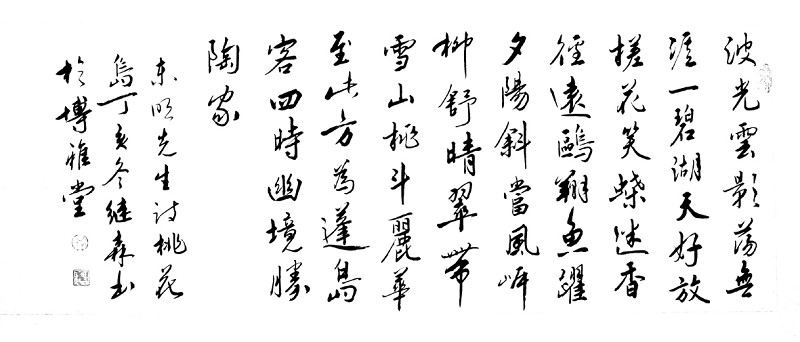 波光雲影蕩無
涯一碧湖天好放
槎花笑蝶迷香
徑遠鷗翔魚躍
夕陽斜當風岸
柳舒晴翠帶
雪山桃斗麗華
至此方為蓬島
客四時幽境勝
陶家
東明先生詩桃花
島丁亥冬继森书
於博雅堂